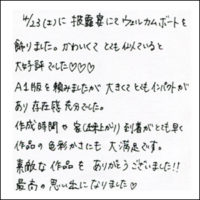 4/23(土)に 披露宴にてウェルカムボードを
飾りました。かわいくて とも似ていると
大好評でした♡♡♡
A1版を頼みましたが 大きくてともインパクトが
あり存在感 充分でした。
作成時間や 客(出来上がり)到着がとも早く
作品の色彩がさにも 大満足です。
素敵な作品を ありがとうございました!!
最高の思い出になりました♡